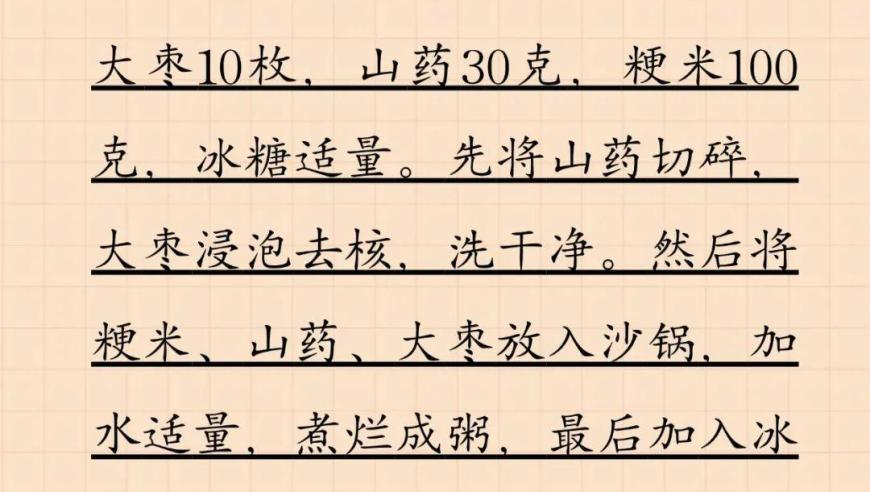 大枣10枚，山药30克，粳米100
克，冰糖适量。先将山药切碎，
大枣浸泡去核，洗干净。然后将
粳米、山药、大枣放入沙锅，加
水适量，煮烂成粥，最后加入冰